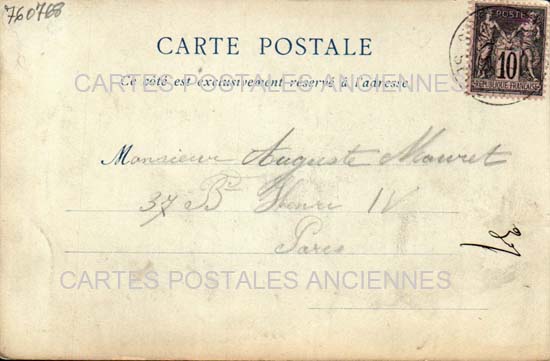 760768
POSTE
10
REPUBLIQUE FRANÇAISE
CARTE POSTALE
CARTES POSTALES ANCIENNES
Ce côté est exclusivement réservé à l'adresse
Monsieur Auguste Mouret
37 Bd Henri IV
Paris
CARTES POSTALES ANCIENNES